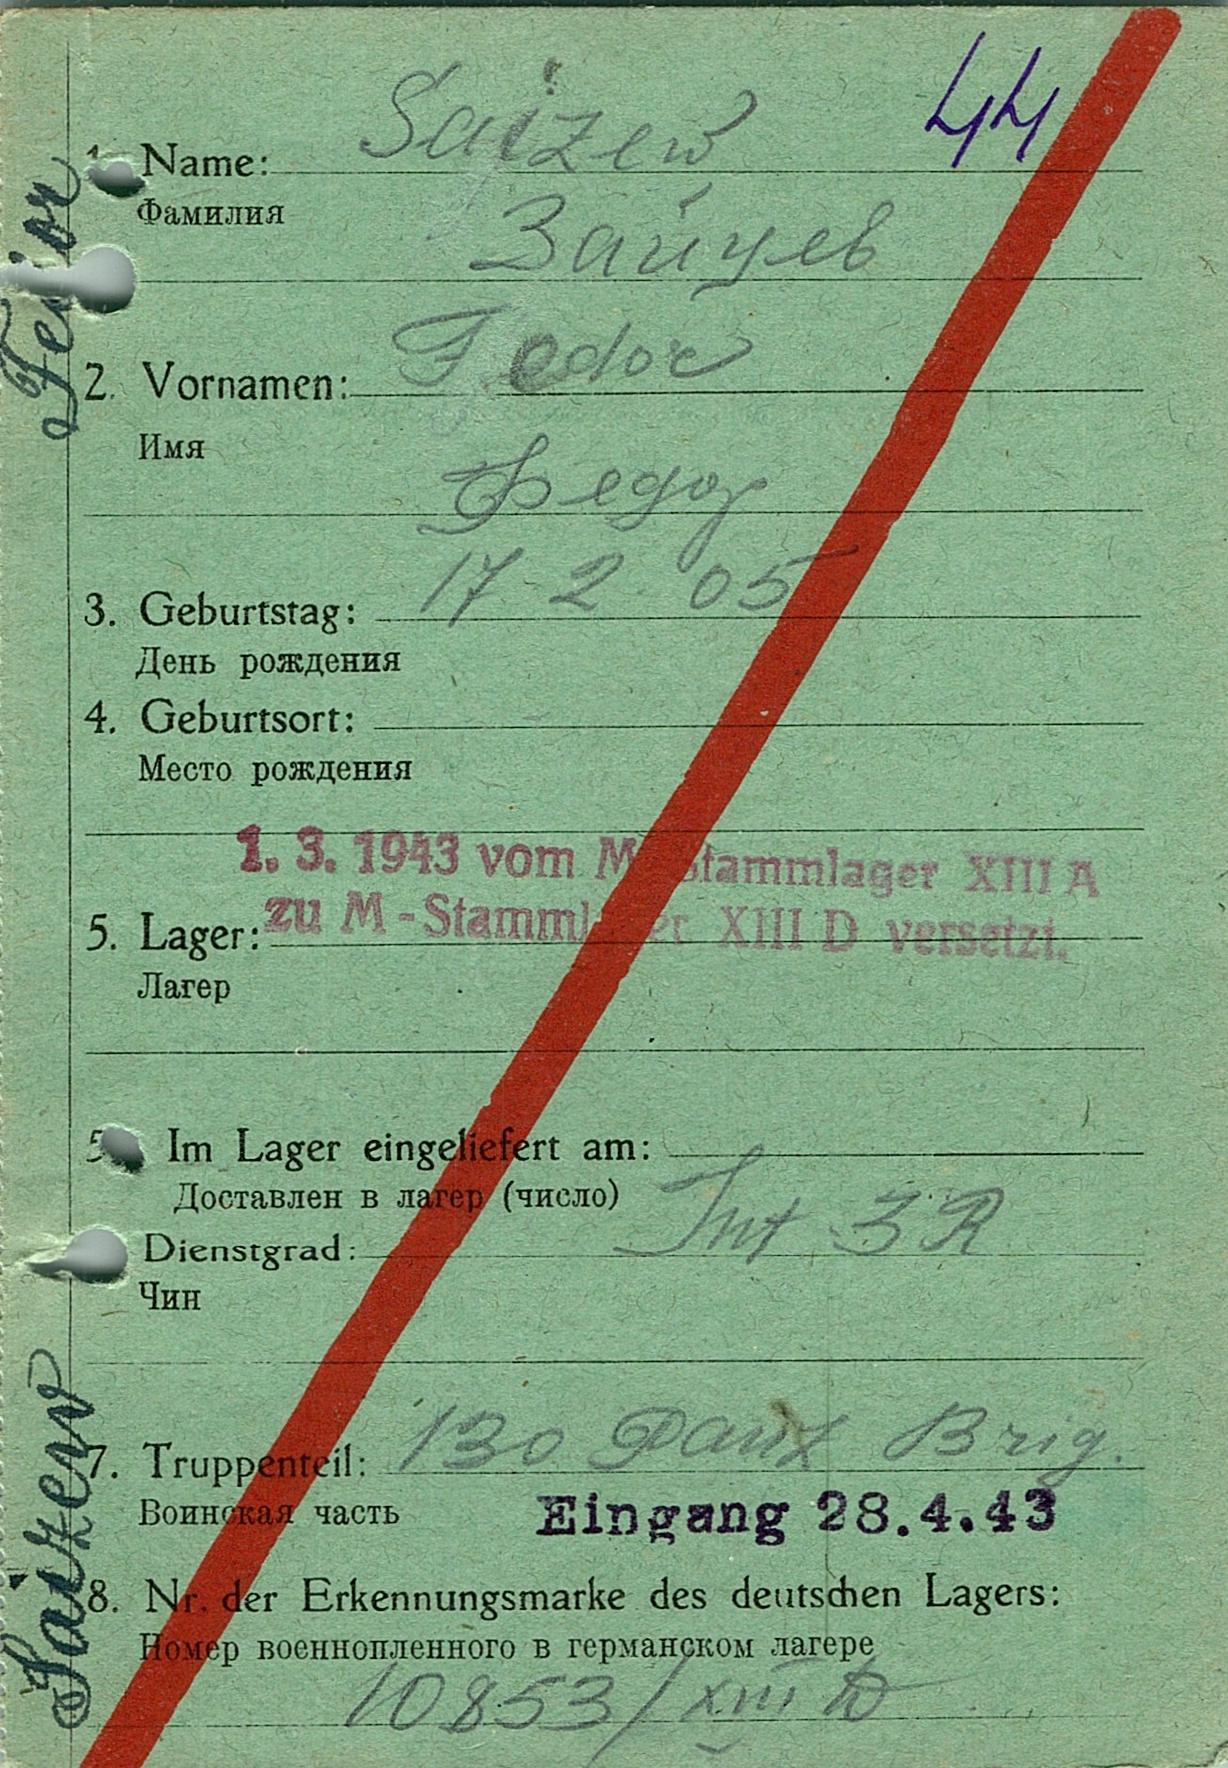 44
Saizew
1. Name:
Фамилия
Зайцев
Fedor
2. Vornamen:
Имя
Федор
17 2 05
3. Geburtstag:
День рождения
4. Geburtsort:
Место рождения
1. 3. 1943 vom M-Stammlager XIII A
zu M-Stammlager XIII D versetzt.
5. Lager:
Лагер
Im Lager eingeliefert am:
Доставлен в лагер (число)
Dienstgrad: Int 3 R
Чин
7. Truppenteil: 130 Panz Brig.
Воинская часть
Eingang 28.4.43
8. Nr. der Erkennungsmarke des deutschen Lagers:
Номер военнопленного в германском лагере
10853/XIII D
Saizew Fedor